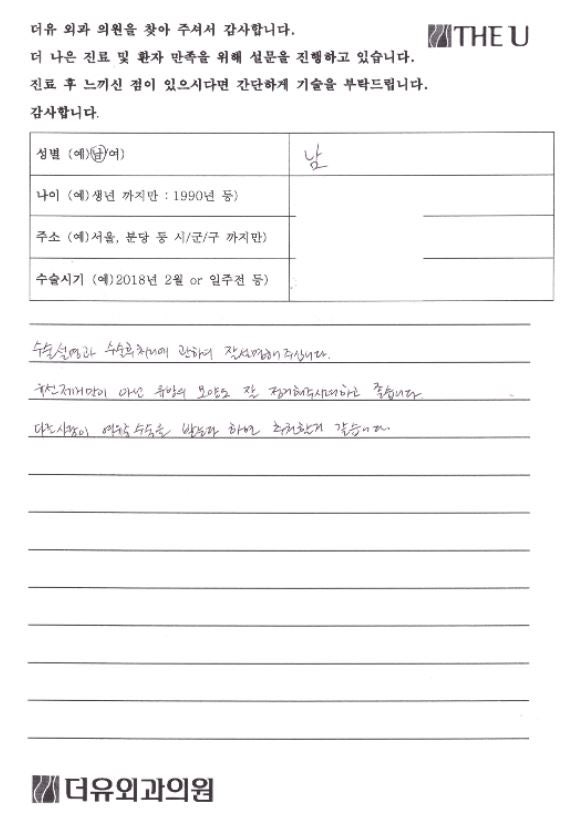 더유 외과 의원을 찾아 주셔서 감사합니다.
THE U
더 나은 진료 및 환자 만족을 위해 설문을 진행하고 있습니다.
진료 후 느끼신 점이 있으시다면 간단하게 기술을 부탁드립니다.
감사합니다.
성별 (예)남/여) 남
나이 (예)생년 까지만 : 1990년 등)
주소 (예)서울, 분당 등 시/군/구 까지만)
수술시기 (예)2018년 2월 or 일주전 등)
수술설명과 수술후처리에 관하여 잘설명해주십니다.
유선제거만이 아닌 유방의 모양도 잘 해주시려하고 좋습니다.
다른사람이 여유증수술을 받는다 하면 추천할거 같습니다.
더유외과의원